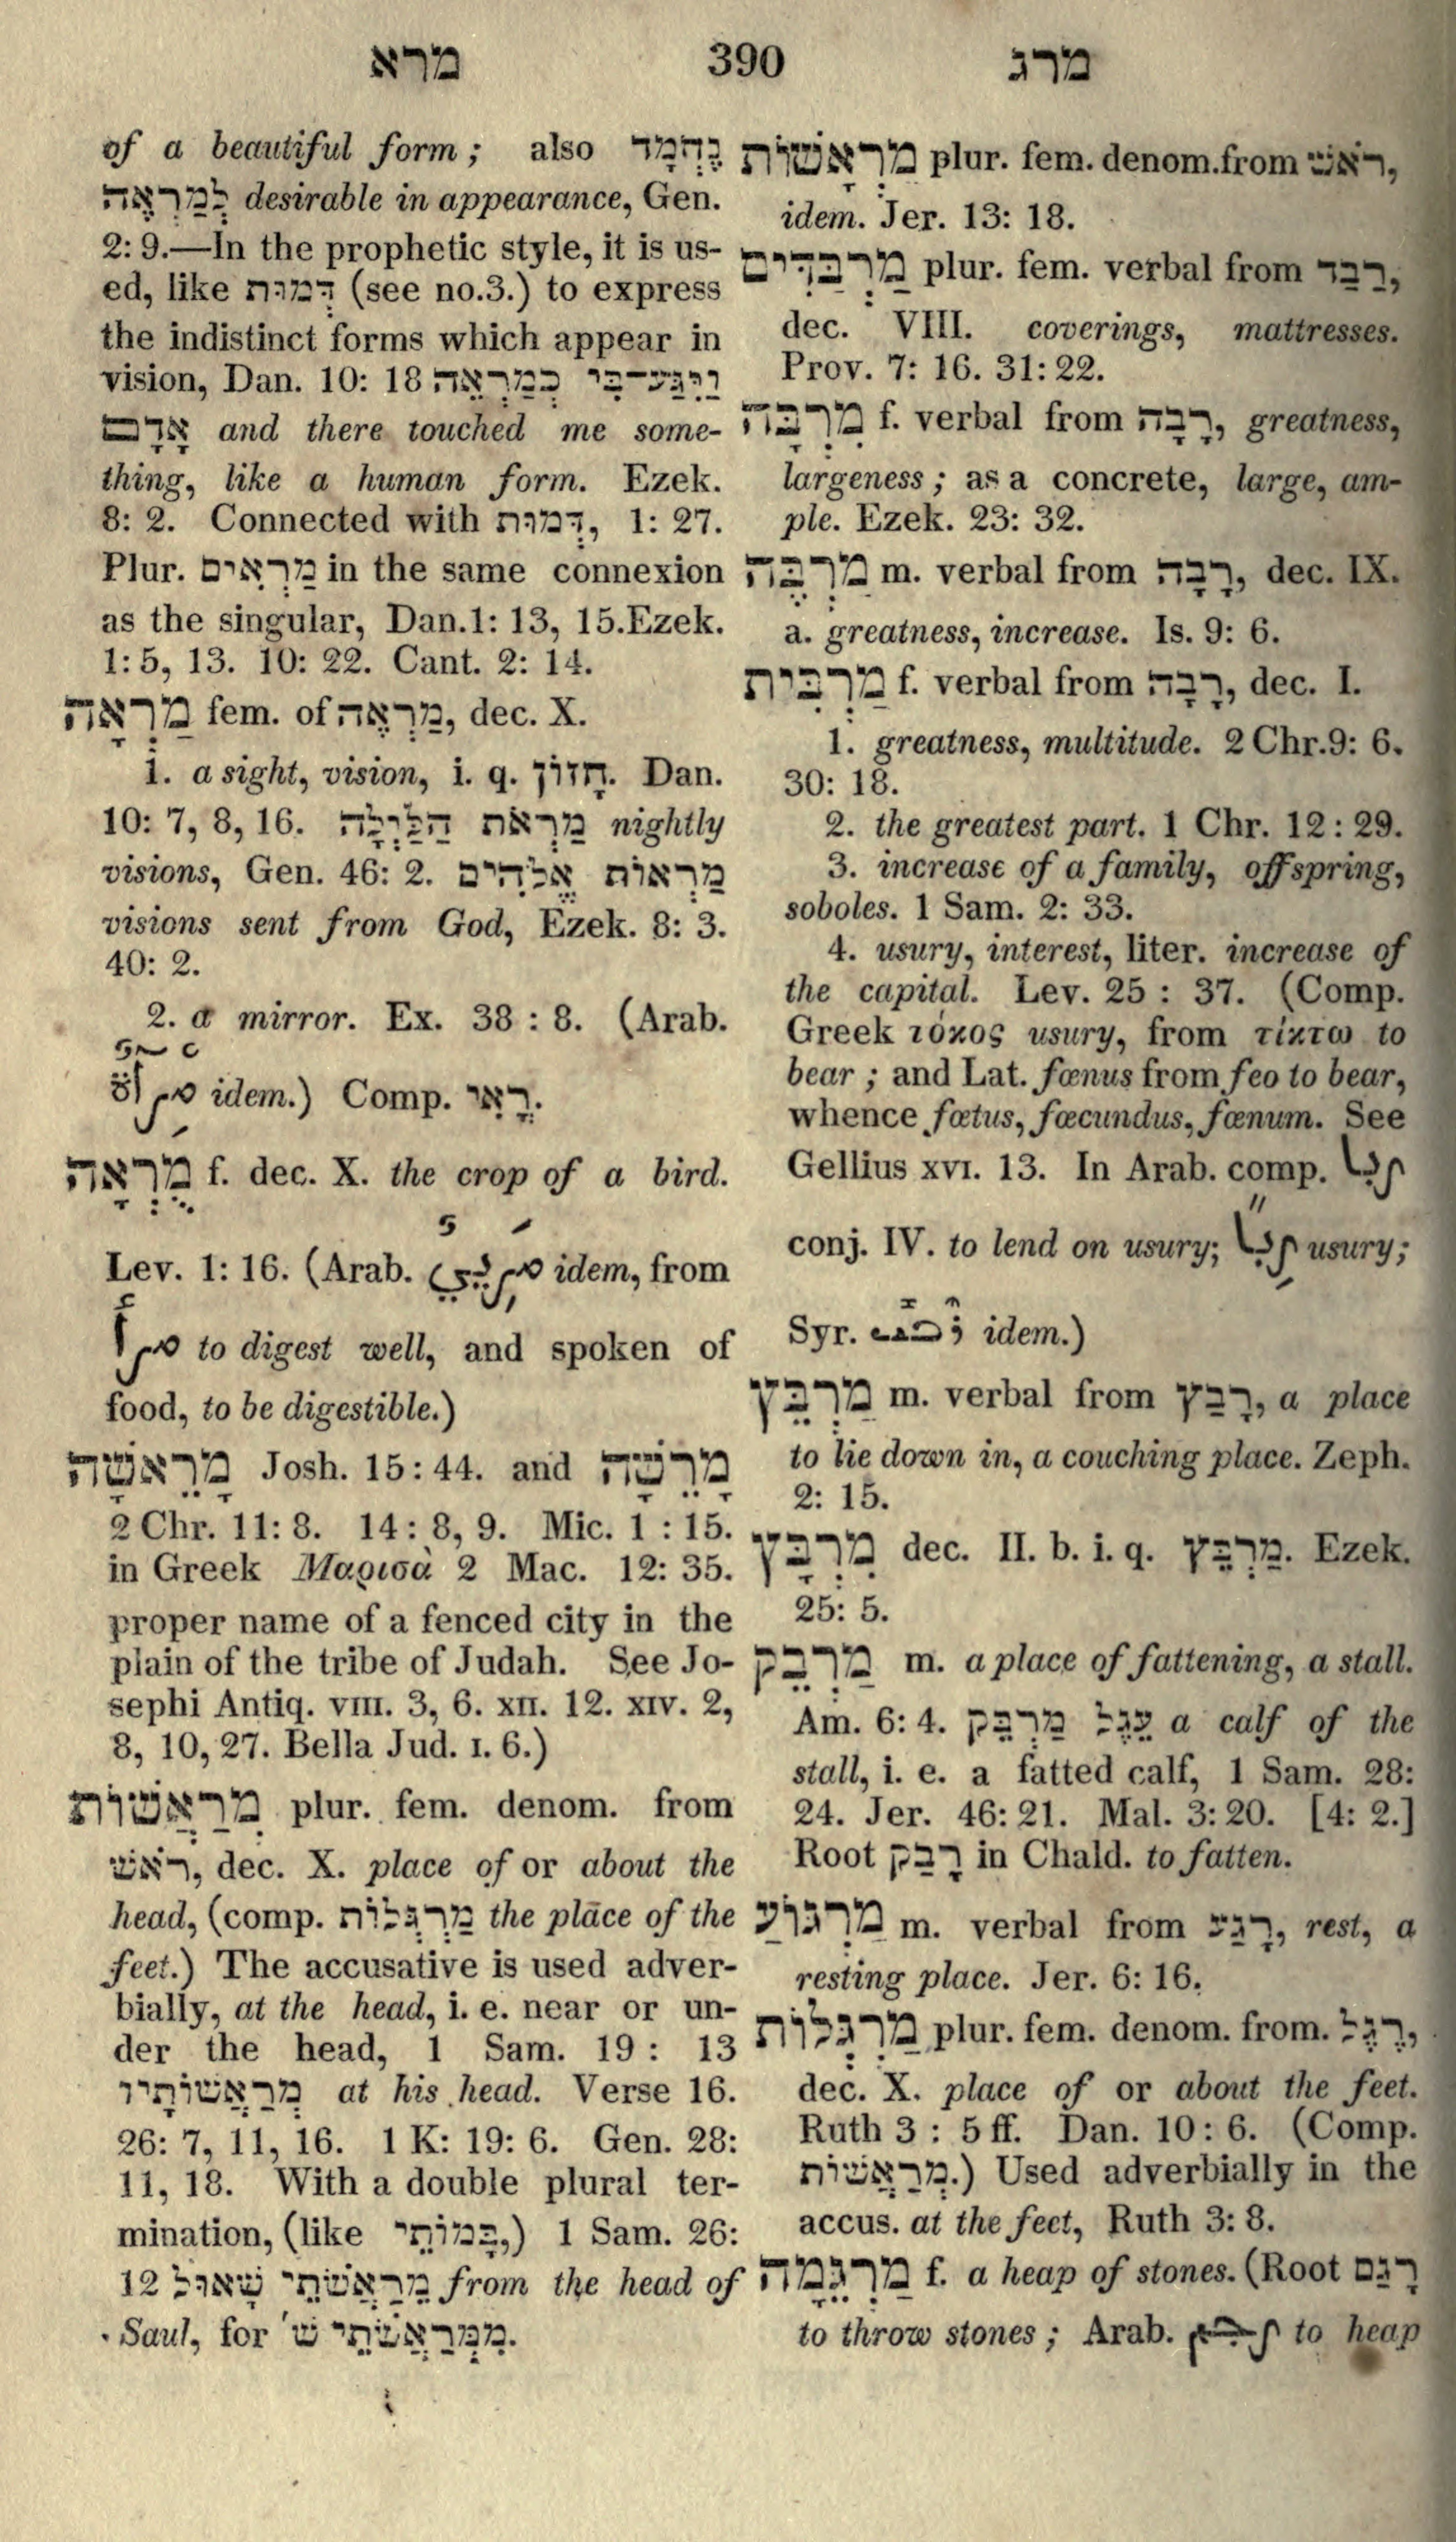 מרא 390 מרג
of a beautiful form; also נֶחְמָד
לְמַרְאֶה desirable in appearance, Gen.
2: 9.—In the prophetic style, it is us-
ed, like דְּמוּת (see no.3.) to express
the indistinct forms which appear in
vision, Dan. 10: 18 וַיִּגַּע־בִּי כְּמַרְאֵה
אָדָם and there touched me some-
thing, like a human form. Ezek.
8: 2. Connected with דְּמוּת, 1: 27.
Plur. מַרְאִים in the same connexion
as the singular, Dan.1: 13, 15.Ezek.
1: 5, 13. 10: 22. Cant. 2: 14.
מַרְאָה fem. of מַרְאֶה, dec. X.
1. a sight, vision, i. q. חָזוֹן. Dan.
10: 7, 8, 16. מַרְאֹת הַלַּיְלָה nightly
visions, Gen. 46: 2. מַרְאוֹת אֱלֹהִים
visions sent from God, Ezek. 8: 3.
40: 2.
2. a mirror. Ex. 38 : 8. (Arab.
مِرْآةٌ idem.) Comp. רְאִי.
מֻרְאָה f. dec. X. the crop of a bird.
Lev. 1: 16. (Arab. idem, from
مرأ to digest well, and spoken of
food, to be digestible.)
מָרֵאשָׁה Josh. 15: 44. and מָרֵשָׁה
2 Chr. 11: 8. 14: 8, 9. Mic. 1 : 15.
in Greek Μαρισὰ 2 Mac. 12: 35.
proper name of a fenced city in the
plain of the tribe of Judah. See Jo-
sephi Antiq. VIII. 3, 6. XII. 12. XIV. 2,
8, 10, 27. Bella Jud. I. 6.)
מְרַאֲשׁוֹת plur. fem. denom. from
רֹאשׁ, dec. X. place of or about the
head, (comp. מַרְגְּלוֹת the place of the
feet.) The accusative is used adver-
bially, at the head, i. e. near or un-
der the head, 1 Sam. 19 : 13
מְרַאֲשׁוֹתָיו at his head. Verse 16.
26: 7, 11, 16. 1 K: 19: 6. Gen. 28:
11, 18. With a double plural ter-
mination, (like בָּמוֹתֵי,) 1 Sam. 26:
12 מֵרַאֲשֹׁתֵי שָׁאוּל from the head of
Saul, for מִמְּרַאֲשֹׁתֵי שׁ׳.
מַרְאָשׁוֹת plur. fem. denom.from רֹאשׁ,
idem. Jer. 13: 18.
מַרְבַדִּים plur. fem. verbal from רָבַד,
dec. VIII. coverings, mattresses.
Prov. 7: 16. 31: 22.
מִרְבָּה f. verbal from רָבָה, greatness,
largeness; as a concrete, large, am-
ple. Ezek. 23: 32.
מַרְבֶּה m. verbal from רָבָה, dec. IX.
a. greatness, increase. Is. 9: 6.
מַרְבִּית f. verbal from רָבָה, dec. I.
1. greatness, multitude. 2 Chr.9: 6.
30: 18.
2. the greatest part. 1 Chr. 12: 29.
3. increase of a family, offspring,
soboles. 1 Sam. 2: 33.
4. usury, interest, liter. increase of
the capital. Lev. 25 : 37. (Comp.
Greek τόκος usury, from τίκτω to
bear; and Lat. fœnus from feo to bear,
whence fœtus, fœcundus, fœnum. See
Gellius XVI. 13. In Arab. comp. ربا
conj. IV. to lend on usury; رِبًا usury;
Syr. idem.)
מַרְבֵּץ m. verbal from רָבַץ, a place
to lie down in, a couching place. Zeph.
2: 15.
מִרְבָּץ dec. II. b. i. q. מַרְבֵּץ. Ezek.
25: 5.
מַרְבֵּק m. a place of fattening, a stall.
Am. 6: 4. עֵגֶל מַרְבֵּק a calf of the
stall, i. e. a fatted calf, 1 Sam. 28:
24. Jer. 46: 21. Mal. 3: 20. [4: 2.]
Root רָבַק in Chald. to fatten.
מַרְגּוֹעַ m. verbal from רָגַע, rest, a
resting place. Jer. 6: 16.
מַרְגְּלוֹת plur. fem. denom. from. רֶגֶל,
dec. X. place of or about the feet.
Ruth 3 : 5 ff. Dan. 10: 6. (Comp.
מְרַאֲשׁוֹת.) Used adverbially in the
accus. at the feet, Ruth 3: 8.
מַרְגֵּמָה f. a heap of stones. (Root רָגַם
to throw stones; Arab. رجم to heap